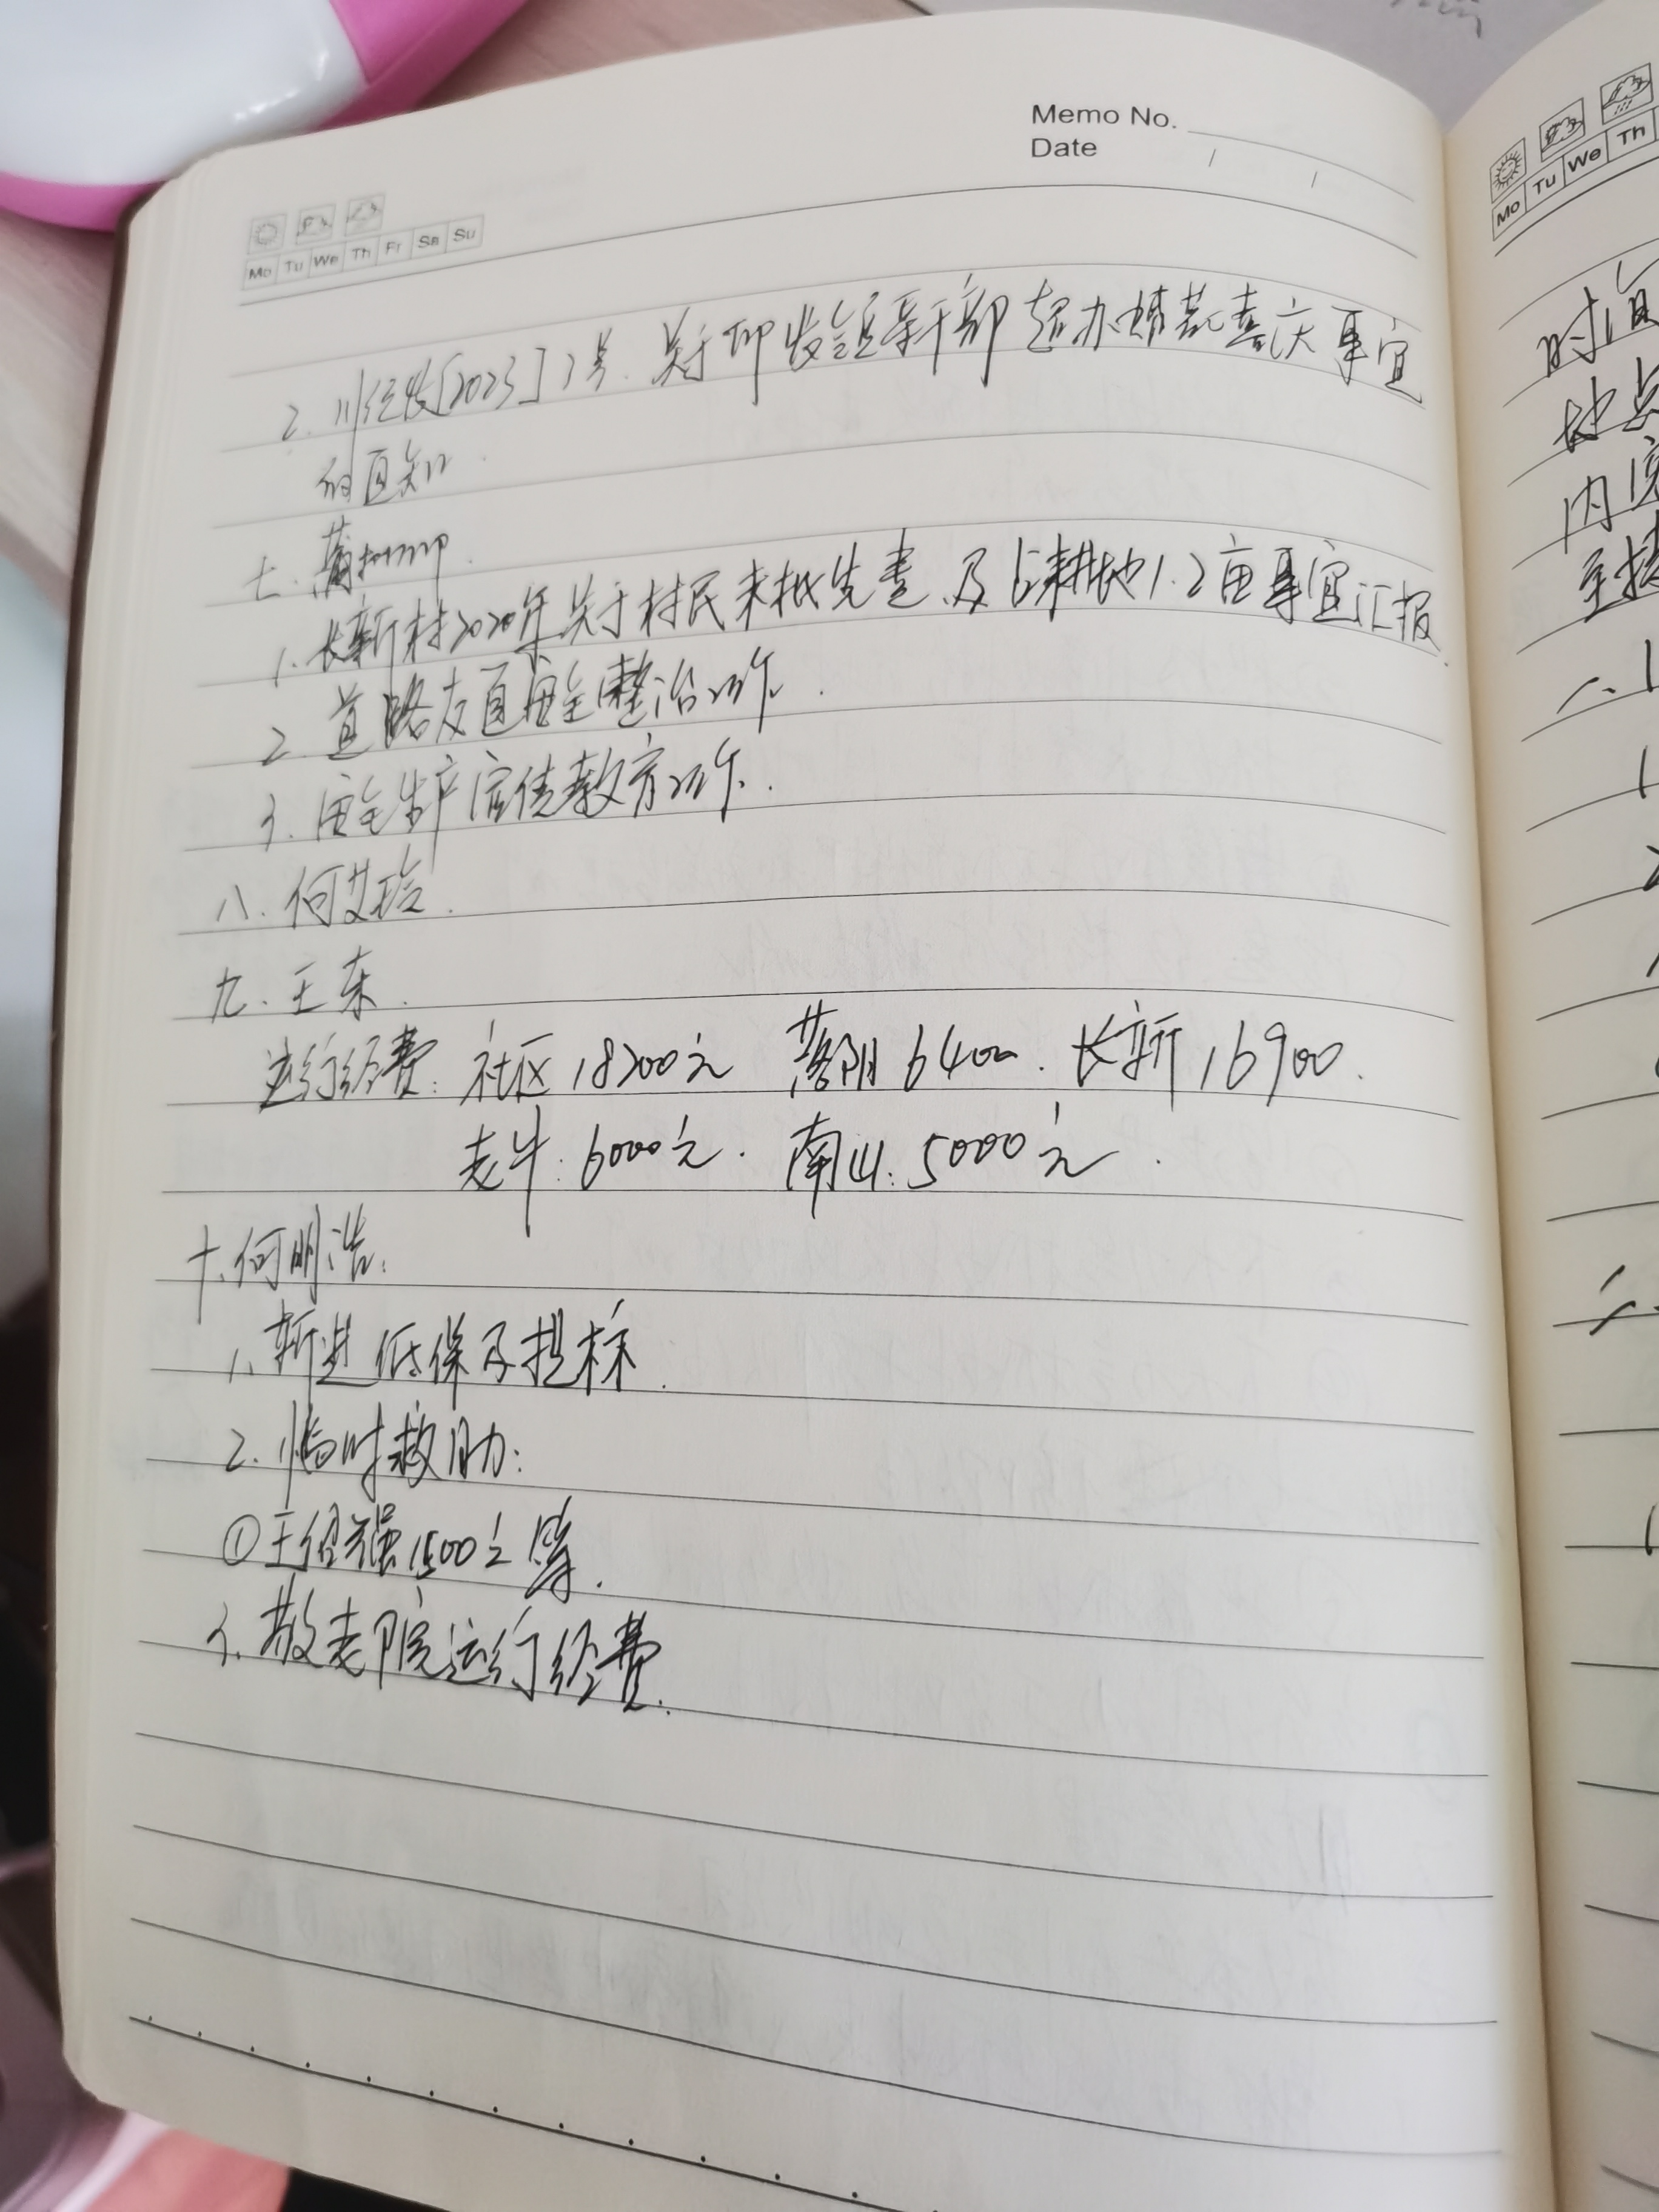 Memo No.
Date / /
Mo Tu We Th Fr Sa Su
Mo Tu We Th
2. 川经发[2023]2号. 关于印发领导干部超办婚丧喜庆事宜
的通知.
七.
1. 长新村2020年关于村民未批先建及占耕地1.2亩事宜汇报.
2. 道路交通安全整治工作.
3. 安全生产宣传教育工作.
八. 何艾玲.
九. 王东.
运行经费: 社区18200元 落阴6400. 长新16900.
老牛: 6000元. 南山: 5000元.
十. 何明浩:
1. 新进低保及提标.
2. 临时救助:
①王绍强1500元
3. 敬老院运行经费.
时间
地点
内容
主持
一.
二.